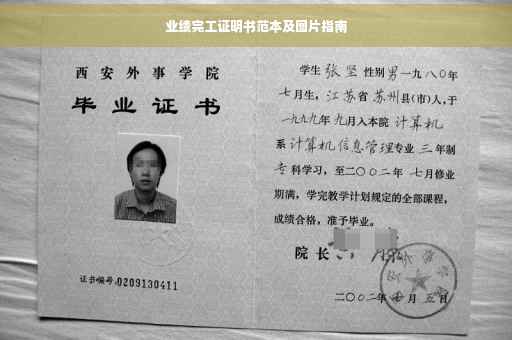 业绩完工证明书范本及图片指南
西安外事学院
毕业证书
证书编号:0209130411
学生 张坚 性别 男 一九八〇年
七月生，江苏省 苏州县(市)人，于
一九九九年 九月入本院 计算机
系 计算机信息管理 专业 三 年制
专科学习，至二〇〇二年 七月修业
期满，学完教学计划规定的全部课程，
成绩合格，准予毕业。
院长
二〇〇二年 月 五日